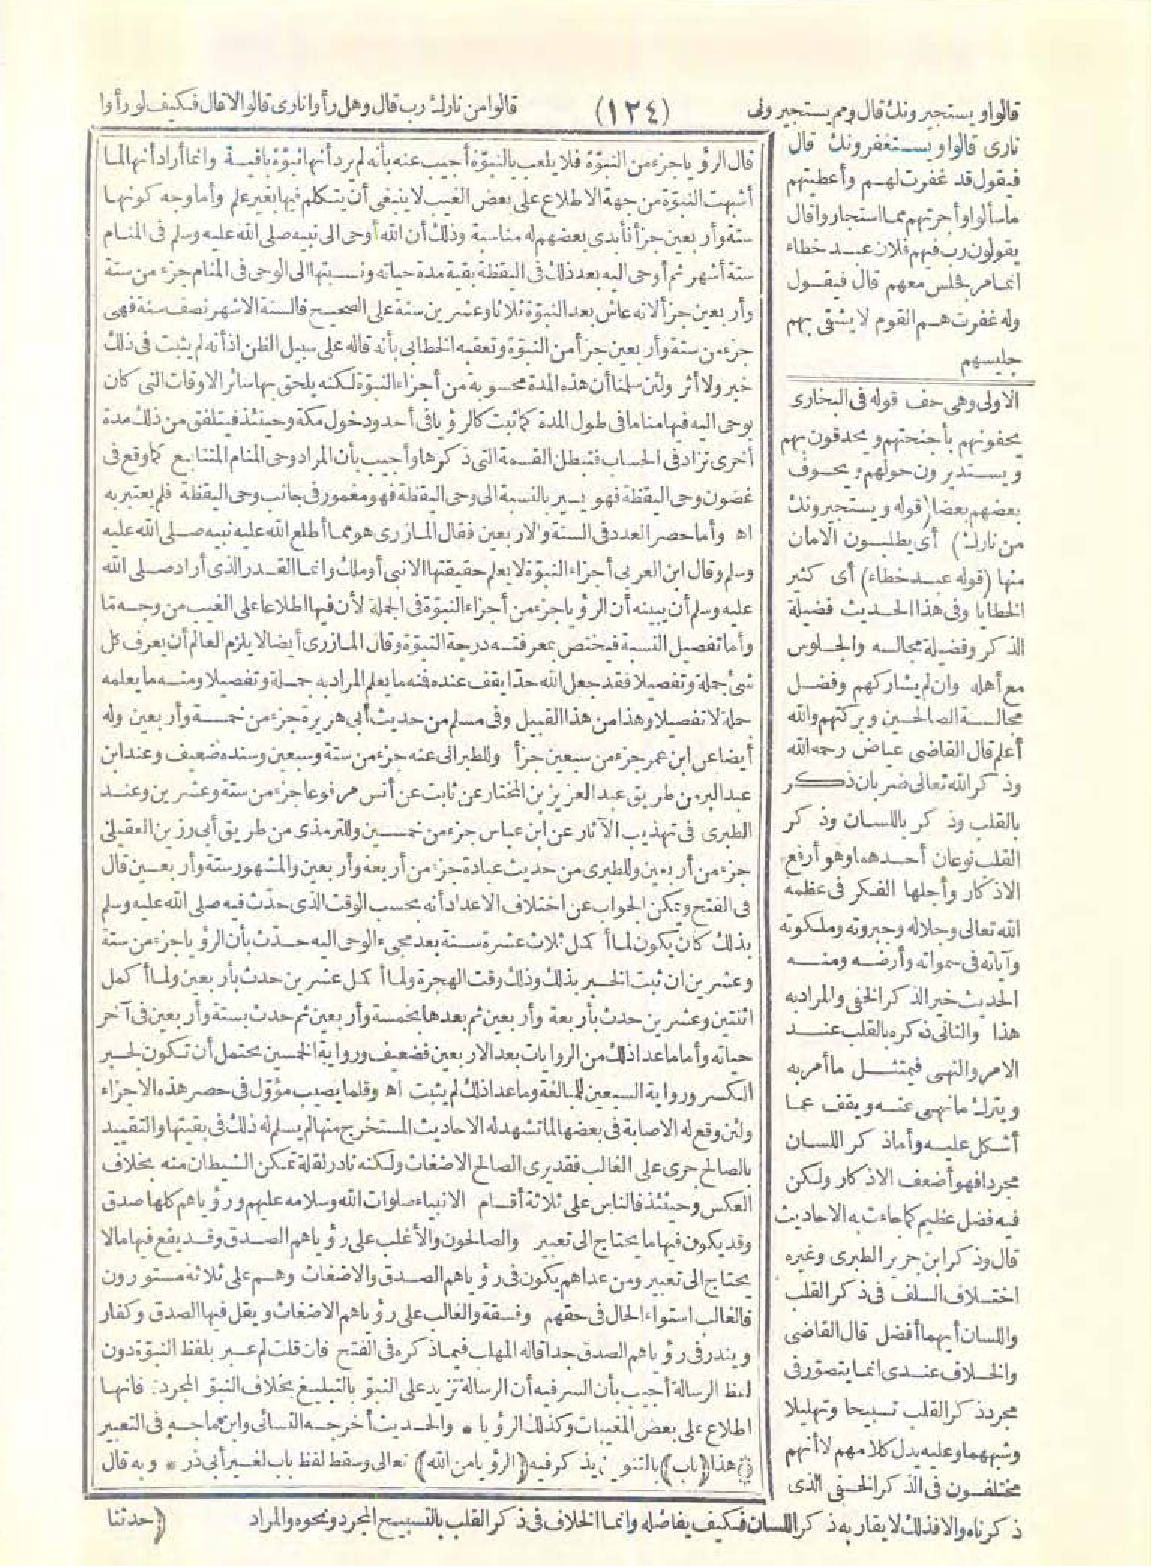 قالوا ويستجيرونك قال ومم يستجيروني
(١٢٤)
قالوا من نارك رب قال وهل رأوا نارى قالوا لا قال فكيف لو رأوا
نارى قالوا ويستغفرونك قال
فيقول قد غفرت لهم وأعطيتهم
ما سألوا وأجرتهم مما استجاروا قال
يقولون رب فيهم فلان عبد خطاء
انما مر فجلس معهم قال فيقول
وله غفرت هم القوم لا يشقى بهم
جليسهم
الاولى وهى حف قوله فى البخارى
يحفونهم بأجنحتهم ويحدقون بهم
ويستديرون حولهم ويحوف
بعضهم بعضا (قوله ويستجيرونك
من نارك) أى يطلبون الامان
منها (قوله عبد خطاء) أى كثير
الخطايا وفى هذا الحديث فضيلة
الذكر وفضيلة مجالسه والجلوس
مع أهله وان لم يشاركهم وفضل
مجالسة الصالحين وبركتهم والله
أعلم قال القاضى عياض رحمه الله
وذكر الله تعالى ضربان ذكر
بالقلب وذكر باللسان وذكر
القلب نوعان أحدهما وهو أرفع
الاذكار وأجلها الفكر فى عظمة
الله تعالى وجلاله وجبروته وملكوته
وآياته فى سمواته وأرضه ومنه
الحديث خير الذكر الخفى والمراد به
هذا والثانى ذكره بالقلب عند
الامر والنهى فيمتثل ما أمر به
ويترك ما نهى عنه ويقف عما
أشكل عليه وأما ذكر اللسان
مجردا فهو أضعف الاذكار ولكن
فيه فضل عظيم كما جاءت به الاحاديث
قال وذكر ابن جرير الطبرى وغيره
اختلاف السلف فى ذكر القلب
واللسان أيهما أفضل قال القاضى
والخلاف عندى انما يتصور فى
مجرد ذكر القلب تسبيحا وتهليلا
وشبههما وعليه يدل كلامهم لا أنهم
مختلفون فى الذكر الخفى الذى
ذكرناه والا فذلك لا يقاربه ذكر اللسان فكيف يفاضله وانما الخلاف فى ذكر القلب بالتسبيح المجرد ونحوه والمراد
قال الرؤيا جزء من النبوّة فلا يلعب بالنبوّة أجيب عنه بأنه لم يرد أنها نبوّة باقية وانما أراد أنها لما
أشبهت النبوّة من جهة الاطلاع على بعض الغيب لا ينبغى أن يتكلم فيها بغير علم وأما وجه كونها
ستة وأربعين جزأ فأبدى بعضهم له مناسبة وذلك أن الله أوحى الى نبيه صلى الله عليه وسلم فى المنام
ستة أشهر ثم أوحى اليه بعد ذلك فى اليقظة بقية مدة حياته ونسبتها الى الوحى فى المنام جزء من ستة
وأربعين جزأ لانه عاش بعد النبوّة ثلاثا وعشرين سنة على الصحيح فالستة الاشهر نصف سنة فهى
جزء من ستة وأربعين جزأ من النبوّة وتعقبه الخطابى بأنه قاله على سبيل الظن اذ أنه لم يثبت فى ذلك
خبر ولا أثر ولئن سلمنا أن هذه المدة محسوبة من أجزاء النبوّة لكنه يلحق بها سائر الاوقات التى كان
يوحى اليه فيها مناما فى طول المدة كما ثبت كالرؤيا فى أحد ودخول مكة وحينئذ فيتلفق من ذلك مدة
أخرى تزاد فى الحساب فتبطل القسمة التى ذكرها وأجيب بأن المراد وحى المنام المتتابع كما وقع فى
غضون وحى اليقظة فهو يسير بالنسبة الى وحى اليقظة فهو مغمور فى جانب وحى اليقظة فلم يعتبر به
اه وأما حصر العدد فى الستة والاربعين فقال المازرى هو مما أطلع الله عليه نبيه صلى الله عليه
وسلم وقال ابن العربى أجزاء النبوّة لا يعلم حقيقتها الا نبى أو ملك وانما القدر الذى أراد صلى الله
عليه وسلم أن يبينه أن الرؤيا جزء من أجزاء النبوّة فى الجملة لأن فيها اطلاعا على الغيب من وجه مّا
وأما تفصيل النسبة فيختص بمعرفته درجة النبوّة وقال المازرى أيضا لا يلزم العالم أن يعرف كل
شئ جملة وتفصيلا فقد جعل الله حدّا يقف عنده فمنه ما يعلم المراد به جملة وتفصيلا ومنه ما يعلمه
جملة لا تفصيلا وهذا من هذا القبيل وفى مسلم من حديث أبى هريرة جزء من خمسة وأربعين وله
أيضا عن ابن عمر جزء من سبعين جزأ وللطبرانى عنه جزء من ستة وسبعين وسنده ضعيف وعند ابن
عبد البر من طريق عبد العزيز بن المختار عن ثابت عن أنس مرفوعا جزء من ستة وعشرين وعند
الطبرى فى تهذيب الآثار عن ابن عباس جزء من خمسين وللترمذى من طريق أبى رزين العقيلى
جزء من أربعين وللطبرى من حديث عبادة جزء من أربعة وأربعين والمشهور ستة وأربعين قال
فى الفتح ويمكن الجواب عن اختلاف الاعداد أنه بحسب الوقت الذى حدّث فيه صلى الله عليه وسلم
بذلك كأن يكون لما أكمل ثلاث عشرة سنة بعد مجىء الوحى اليه حدّث بأن الرؤيا جزء من ستة
وعشرين ان ثبت الخبر بذلك وذلك وقت الهجرة ولما أكمل عشرين حدث بأربعين ولما أكمل
اثنتين وعشرين حدث بأربعة وأربعين ثم بعدها بخمسة وأربعين ثم حدث بستة وأربعين فى آخر
حياته وأما ما عدا ذلك من الروايات بعد الاربعين فضعيف ورواية الخمسين يحتمل أن تكون لجبر
الكسر ورواية السبعين للمبالغة وما عدا ذلك لم يثبت اه وقلما يصيب مؤوّل فى حصر هذه الاجزاء
ولئن وقع له الاصابة فى بعضها لما تشهد له الاحاديث المستخرج منها لم يسلم له ذلك فى بقيتها والتقييد
بالصالح جرى على الغالب فقد يرى الصالح الاضغاث ولكنه نادر لقلة تمكن الشيطان منه بخلاف
العكس وحينئذ فالناس على ثلاثة أقسام الانبياء صلوات الله وسلامه عليهم ورؤياهم كلها صدق
وقد يكون فيها ما يحتاج الى تعبير والصالحون والأغلب على رؤياهم الصدق وقد يقع فيها ما لا
يحتاج الى تعبير ومن عداهم يكون فى رؤياهم الصدق والاضغاث وهم على ثلاثة مستورون
فالغالب استواء الحال فى حقهم وفسقة والغالب على رؤياهم الاضغاث ويقل فيها الصدق وكفار
ويندر فى رؤياهم الصدق جدا قاله المهلب فيما ذكره فى الفتح فان قلت لم عبر بلفظ النبوّة دون
لفظ الرسالة أجيب بأن السر فيه أن الرسالة تزيد على النبوّة بالتبليغ بخلاف النبوّة المجردة فانها
اطلاع على بعض المغيبات وكذلك الرؤيا * والحديث أخرجه النسائى وابن ماجه فى التعبير
هذا (باب) بالتنوين يذكر فيه (الرؤيا من الله) تعالى وسقط لفظ باب لغير أبى ذر * وبه قال
(حدثنا